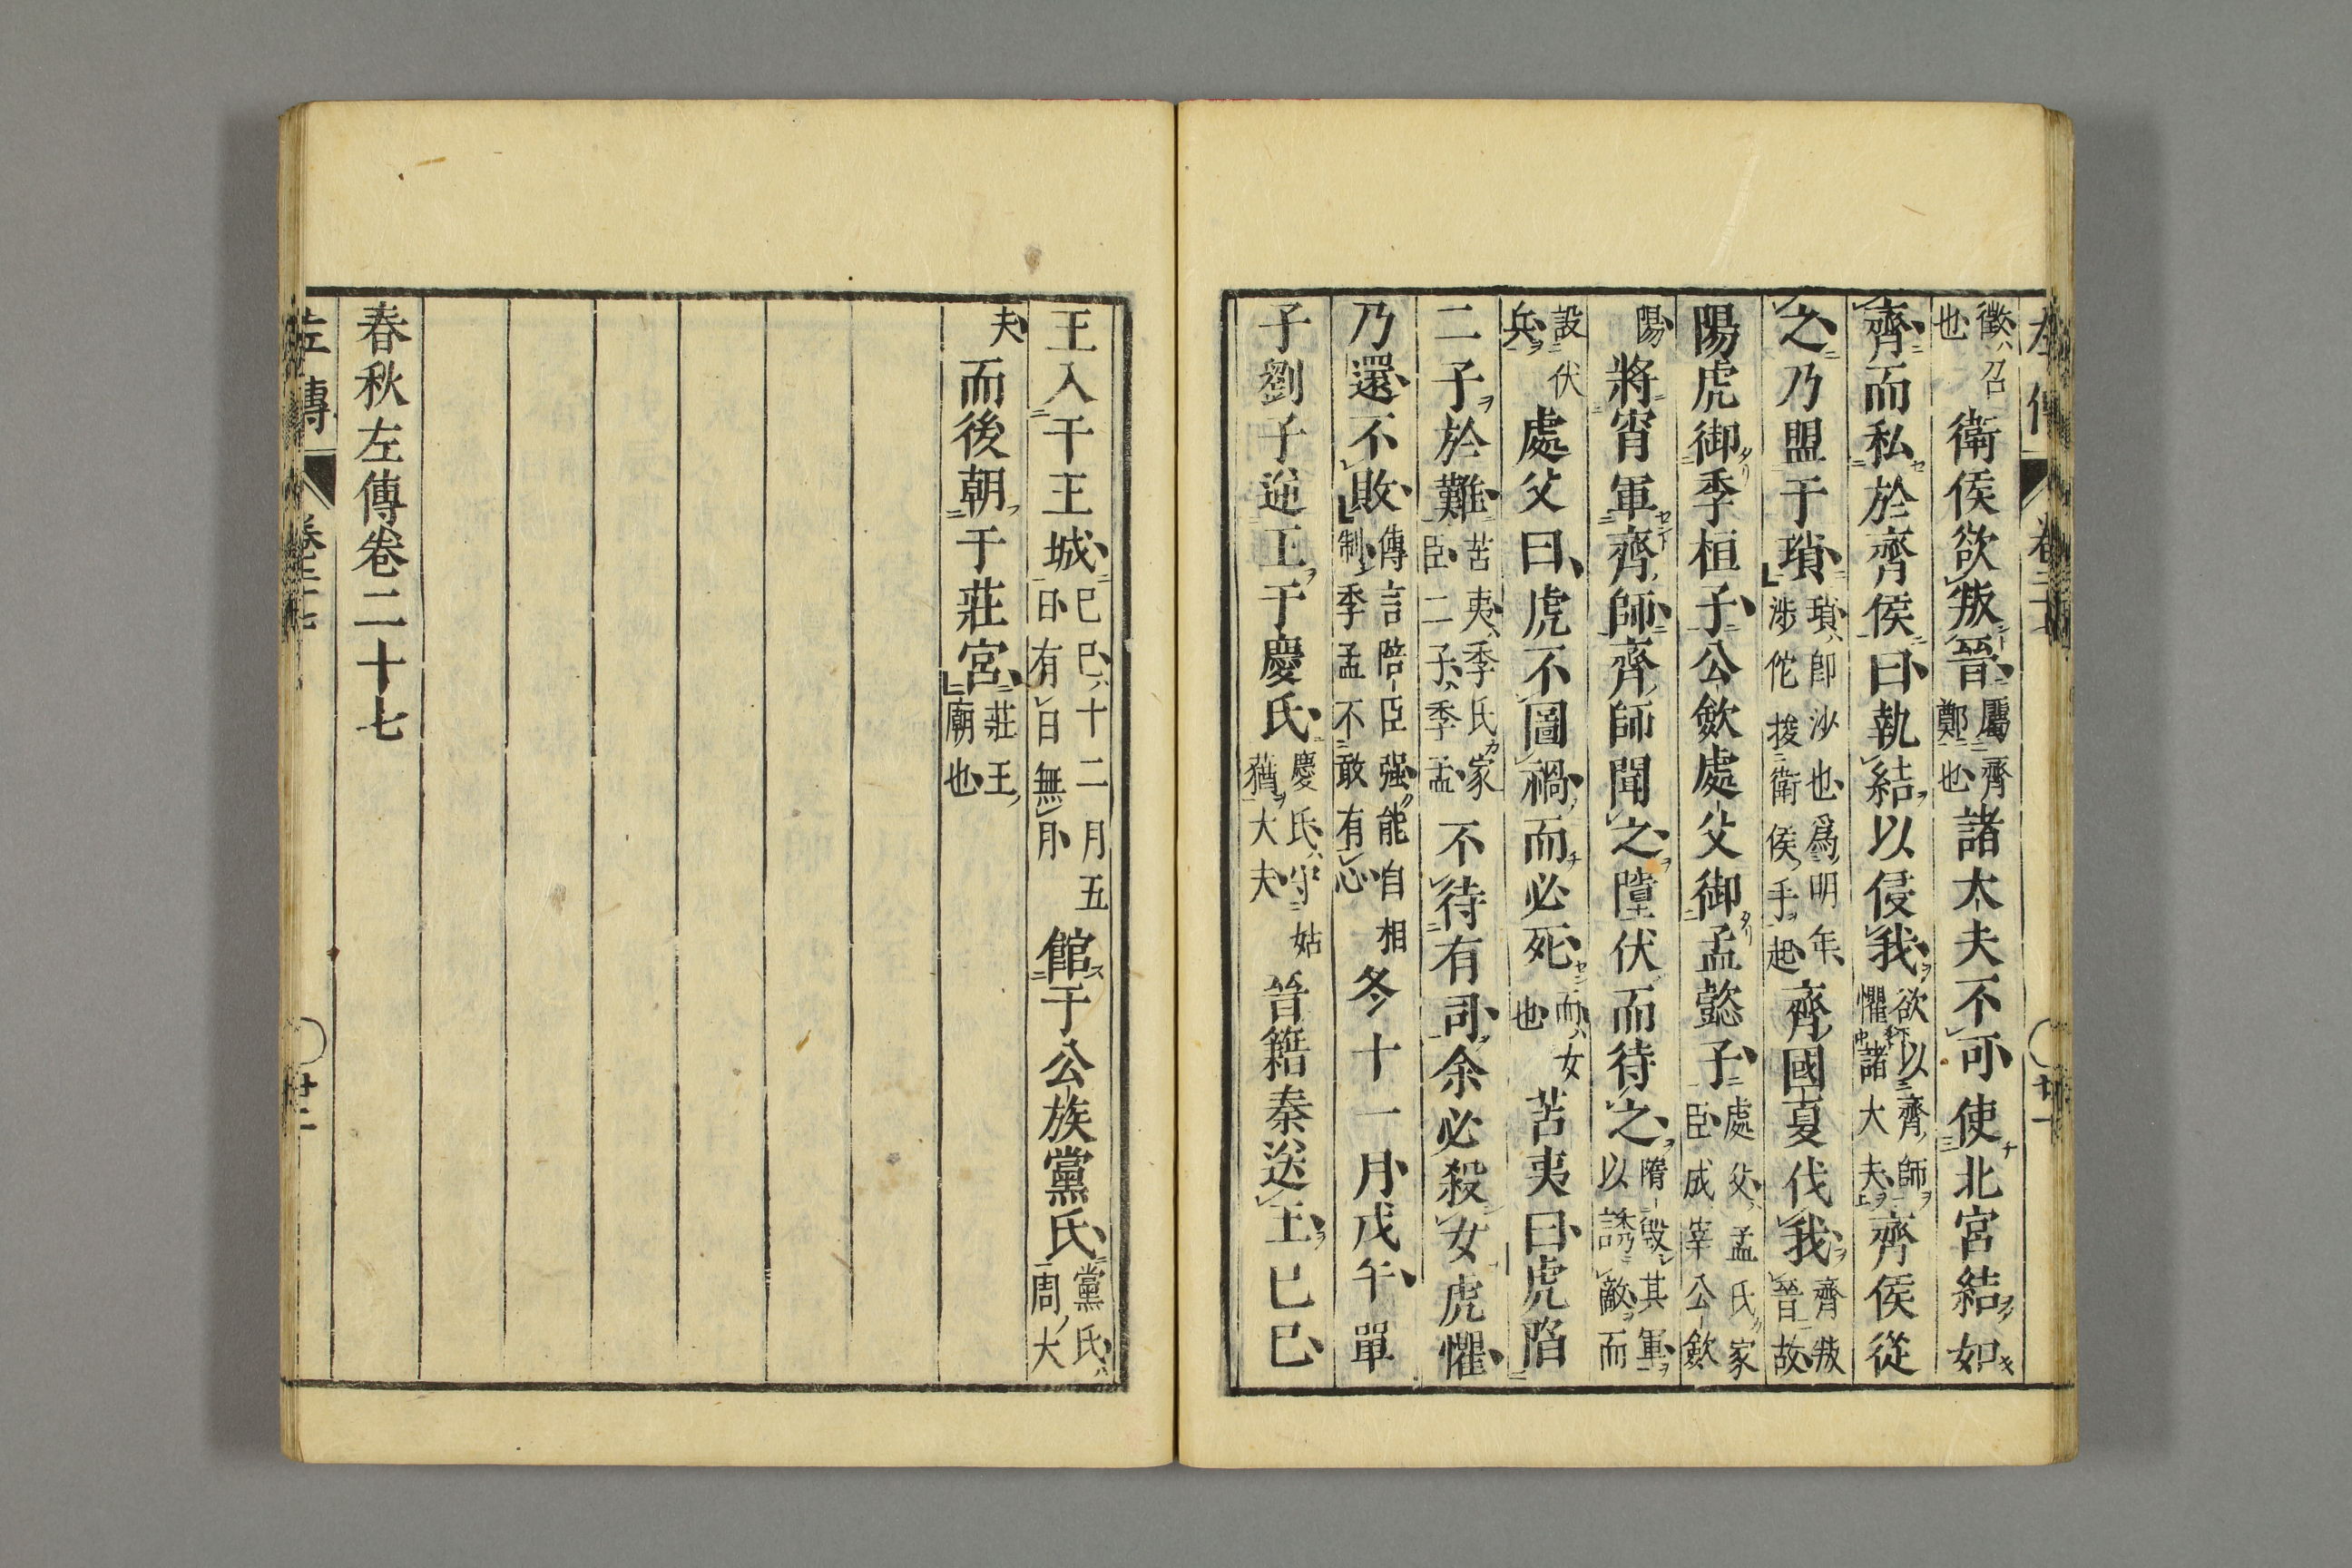 徵召也衛侯欲叛晉屬齊鄭也諸大夫不可使北宮結如
齊而私於齊侯曰執結以侵我欲以齊師懼諸大夫齊侯從
之乃盟于瑣瑣卽沙也爲明年涉佗捘衛侯手起齊國夏伐我齊叛晉故
陽虎御季桓子公斂處父御孟懿子處父孟氏家臣成宰公斂
陽將宵軍齊師齊師聞之墮伏而待之隋毀其軍以誘敵而
設伏兵處父曰虎不圖禍而必死而女也苫夷曰虎陷
二子於難苫夷季氏家臣二子季孟不待有司余必殺女虎懼
乃還不敗傳言陪臣强能自相制季孟不敢有心冬十一月戊午單
子劉子逆王于慶氏慶氏守姑蕕大夫晉籍秦送王己巳
王入于王城己巳十二月五日有日無月館于公族黨氏黨氏周大
夫而後朝于莊宮莊王廟也
春秋左傳卷二十七
左傳 卷二十七 廿二